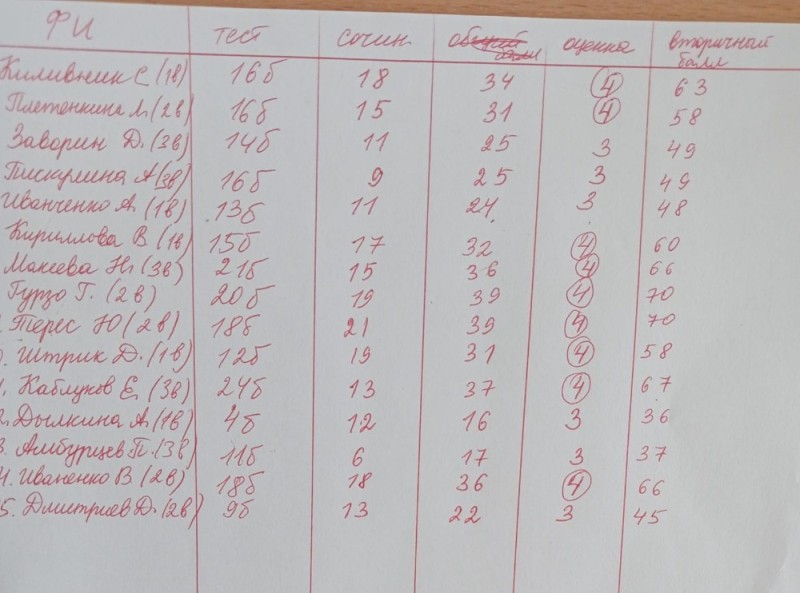 ФИ тест сочин. общий балл оценка вторичный балл
Киливник С (1в) 16б 18 34 4 63
Плетенкина М. (2в) 16б 15 31 4 58
Заворин Д. (3в) 14б 11 25 3 49
Пискулина А (3в) 16б 9 25 3 49
Иванченко А. (1в) 13б 11 24 3 48
Кириллова В (1в) 15б 17 32 4 60
Макеева Н. (3в) 21б 15 36 4 66
Гурзо Г. (2в) 20б 19 39 4 70
Терес Ю (2в) 18б 21 39 4 70
Штрик Д. (1в) 12б 19 31 4 58
1. Каблуков Е. (3в) 24б 13 37 4 67
2. Дылкина А. (1в) 4б 12 16 3 36
3. Амбурцев П. (3в) 11б 6 17 3 37
4. Иваненко В (2в) 18б 18 36 4 66
5. Дмитриев Д. (2в) 9б 13 22 3 45